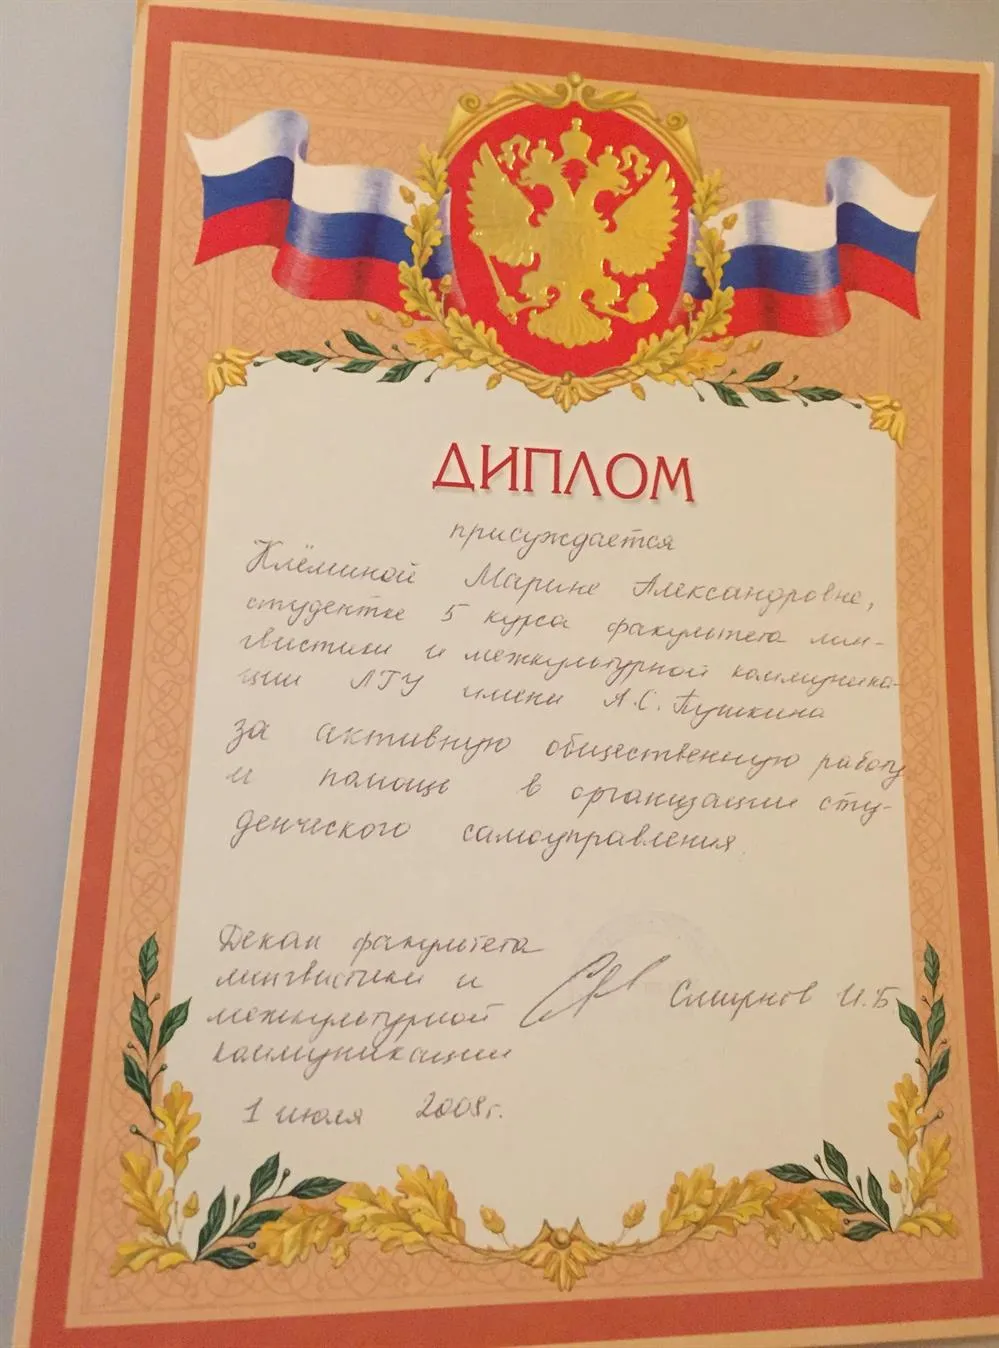 ДИПЛОМ
присуждается
Клёминой Марине Александровне,
студентке 5 курса факультета лин-
гвистики и межкультурной коммуника-
ции ЛГУ имени А.С. Пушкина
за активную общественную работу
и помощь в организации сту-
денческого самоуправления
Декан факультета
лингвистики и
межкультурной
коммуникации
Смирнов И.Б.
1 июля 2008г.